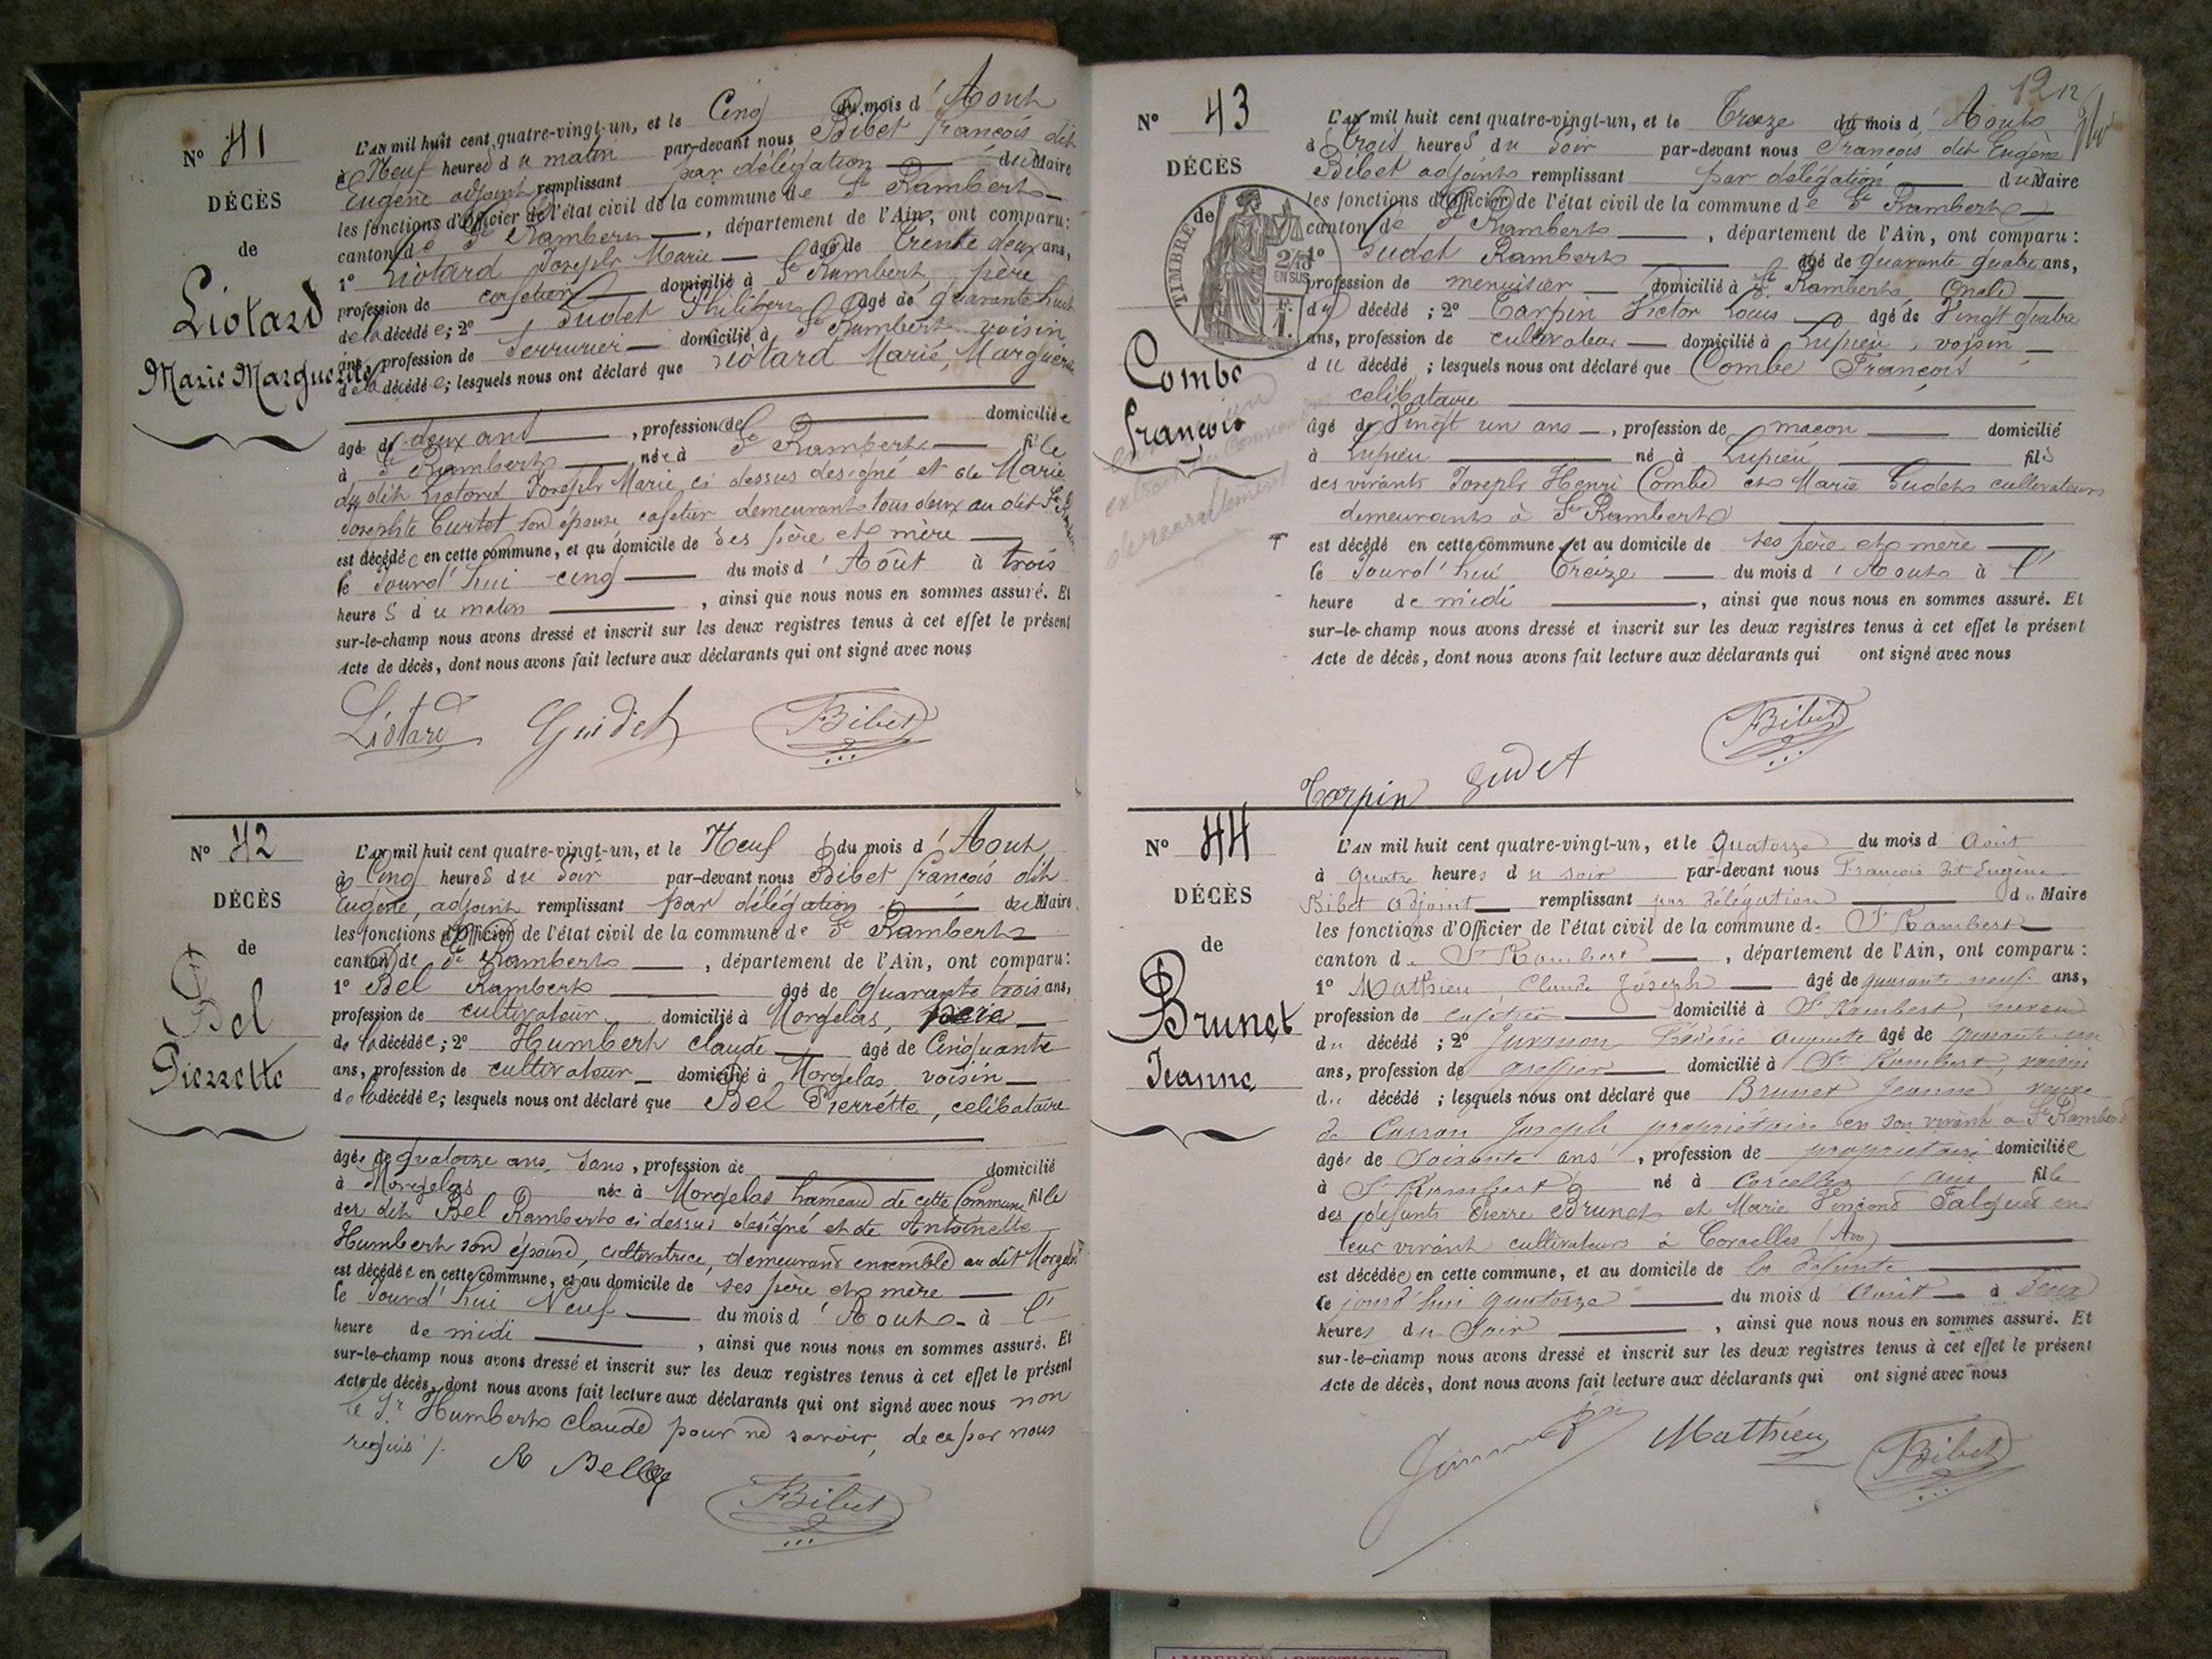 N° 41
DÉCÈS
de
Liotard
Marie Marguerite
L'AN mil huit cent quatre-vingt-un, et le Cinq du mois d'Aout
à Neuf heures du matin par-devant nous Bibet françois dit
Eugène adjoint remplissant par délégation du Maire
les fonctions d'Officier de l'état civil de la commune de St Rambert
canton de St Rambert, département de l'Ain, ont comparu:
1° Liotard Joseph Marie âgé de trente deux ans,
profession de cafetier domicilié à St Rambert, père
de la décédée; 2° Gudet Philibert âgé de quarante huit
ans, profession de Serrurier domicilié à St Rambert voisin
de la décédée; lesquels nous ont déclaré que Liotard Marie, Marguerite
âgée de deux ans, profession de domiciliée
à St Rambert née à St Rambert fille
du dit Liotard Joseph Marie ci dessus designé et de Marie
Josephte Curtet son épouse cafetier demeurants tous deux au dit St
est décédée en cette commune, et au domicile de ses père et mère
le Jourd'hui cinq du mois d'Août à trois
heures du matin, ainsi que nous nous en sommes assuré. Et
sur-le-champ nous avons dressé et inscrit sur les deux registres tenus à cet effet le présent
Acte de décès, dont nous avons fait lecture aux déclarants qui ont signé avec nous
Liotard Guidet FBibet
N° 42
DÉCÈS
de
Bel
Pierrette
L'AN mil huit cent quatre-vingt-un, et le Neuf du mois d'Aout
à Cinq heures du Soir par-devant nous Bibet françois dit
Eugène, adjoint remplissant par délégation du Maire
les fonctions d'Officier de l'état civil de la commune de St Rambert
canton de St Rambert, département de l'Ain, ont comparu:
1° Bel Rambert âgé de quarante trois ans,
profession de cultivateur domicilié à Morgelas, père
de la décédée; 2° Humbert claude âgé de Cinquante
ans, profession de cultivateur domicilié à Morgelas voisin
de la décédée; lesquels nous ont déclaré que Bel Pierrette, celibataire
âgée de quatorze ans, Sans, profession de domicilié
à Morgelas née à Morgelas hameau de cette Commune fille
des dit Bel Rambert ci dessus designé et de Antoinette
Humbert son épouse, cultivatrice, demeurant ensemble au dit Morgelas
est décédée en cette commune, et au domicile de ses père et mère
le Jourd'hui Neuf du mois d'Aout à l'
heure de midi, ainsi que nous nous en sommes assuré. Et
sur-le-champ nous avons dressé et inscrit sur les deux registres tenus à cet effet le présent
Acte de décès, dont nous avons fait lecture aux déclarants qui ont signé avec nous non
le Sr Humbert claude pour ne savoir, de ce par nous
requis /.
R Bel FBibet
12
N° 43
DÉCÈS
TIMBRE de
2/10 EN SUS
1 F.
Combe
françois
L'AN mil huit cent quatre-vingt-un, et le Treize du mois d'Aout
à trois heures du Soir par-devant nous François dit Eugène
Bibet adjoint remplissant par délégation du Maire
les fonctions d'Officier de l'état civil de la commune de St Rambert
canton de St Rambert, département de l'Ain, ont comparu:
1° Gudet Rambert âgé de quarante quatre ans,
profession de menuisier domicilié à St Rambert Oncle
du décédé; 2° Tarpin Victor Louis âgé de Vingt quatre
ans, profession de cultivateur domicilié à Lupieu, voisin
du décédé; lesquels nous ont déclaré que Combe François
celibataire
âgé de Vingt un ans, profession de maçon domicilié
à Lupieu né à Lupieu fils
des vivants Joseph Henri Combe et Marie Gudet cultivateurs
demeurants à St Rambert
est décédé en cette commune, et au domicile de ses père et mere
le Jourd'hui Treize du mois d'Aout à l'
heure de midi, ainsi que nous nous en sommes assuré. Et
sur-le-champ nous avons dressé et inscrit sur les deux registres tenus à cet effet le présent
Acte de décès, dont nous avons fait lecture aux déclarants qui ont signé avec nous
Tarpin Gudet FBibet
N° 44
DÉCÈS
de
Brunet
Jeanne
L'AN mil huit cent quatre-vingt-un, et le Quatorze du mois d'Août
à Quatre heures du soir par-devant nous François dit Eugène
Bibet adjoint remplissant par délégation du Maire
les fonctions d'Officier de l'état civil de la commune de St Rambert
canton de St Rambert, département de l'Ain, ont comparu:
1° Mathieu, Claude Joseph âgé de quarante neuf ans,
profession de cafetier domicilié à St Rambert, neveu
du décédé; 2° Juvanon Frédéric Auguste âgé de quarante un
ans, profession de greffier domicilié à St Rambert, voisin
du décédé; lesquels nous ont déclaré que Brunet Jeanne veuve
de Joseph propriétaire en son vivant à St Rambert
âgée de Soixante ans, profession de propriétaire domiciliée
à St Rambert né à Corcelles (Ain) fille
des défunts Pierre Brunet et Marie Falques en
leur vivant cultivateurs à Corcelles (Ain)
est décédée en cette commune, et au domicile de la défunte
le jourd'hui quatorze du mois d'Août à Deux
heures du Soir, ainsi que nous nous en sommes assuré. Et
sur-le-champ nous avons dressé et inscrit sur les deux registres tenus à cet effet le présent
Acte de décès, dont nous avons fait lecture aux déclarants qui ont signé avec nous
Mathieu FBibet